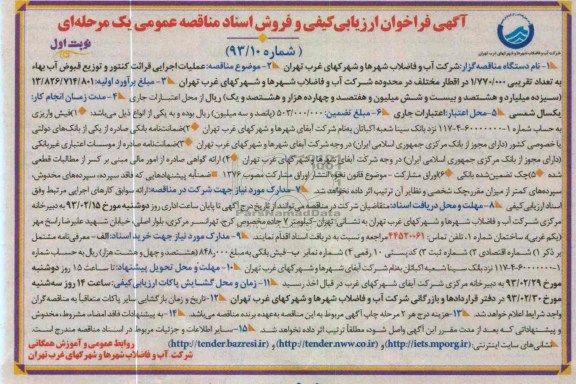 آگهی فراخوان ارزیابی کیفی و فروش اسناد مناقصه عمومی یک مرحله‌ای
(شماره ۹۳/۱۰)
نوبت اول
شرکت آب و فاضلاب شهرها و شهرکهای غرب تهران
۱- نام دستگاه مناقصه گزار: شرکت آب و فاضلاب شهرها و شهرکهای غرب تهران ۲- موضوع مناقصه: عملیات اجرایی قرائت کنتور و توزیع قبوض آب بهاء
به تعداد تقریبی ۱/۷۷۰/۰۰۰ در اقطار مختلف در محدوده شرکت آب و فاضلاب شهرها و شهرکهای غرب تهران ۳- مبلغ برآورد اولیه: ۱۳/۸۲۶/۷۱۴/۸۰۱
(سیزده میلیارد و هشتصد و بیست و شش میلیون و هفتصد و چهارده هزار و هشتصد و یک) ریال از محل اعتبارات جاری ۴- مدت زمان انجام کار:
یکسال شمسی ۵- محل اعتبار: اعتبارات جاری ۶- مبلغ تضمین: ۵۰۳/۰۰۰/۰۰۰ (پانصد و سه میلیون) ریال بوده و به یکی از انواع ذیل می‌باشد: ۱) فیش واریزی
به حساب شماره ۱-۶۰۰۰۰۰۰-۴-۱۱۷ نزد بانک سینا شعبه اکباتان به‌نام شرکت آبفای شهرها و شهرکهای غرب تهران ۲) ضمانت‌نامه بانکی صادره از یکی از بانک‌های دولتی
یا خصوصی کشور (دارای مجوز از بانک مرکزی جمهوری اسلامی ایران) در وجه شرکت آبفای شهرها و شهرکهای غرب تهران ۳) ضمانت‌نامه صادره از موسسات اعتباری غیربانکی
(دارای مجوز از بانک مرکزی جمهوری اسلامی ایران) در وجه شرکت آبفای شهرها و شهرکهای غرب تهران ۴) ارائه گواهی صادره از امور مالی مبنی بر کسر از مطالبات قطعی
شده ۵) چک تضمین‌شده بانکی ۶) اوراق مشارکت - موضوع قانون نحوه انتشار اوراق مشارکت مصوب ۱۳۷۶ ضمناً به پیشنهادهایی که فاقد سپرده، سپرده‌های مخدوش،
سپرده‌های کمتر از میزان مقرر، چک شخصی و نظایر آن ترتیب اثر داده نخواهد شد. ۷- مدارک مورد نیاز جهت شرکت در مناقصه: ارائه سوابق کارهای اجرایی مرتبط وفق
اسناد ارزیابی کیفی ۸- مهلت و محل دریافت اسناد: متقاضیان شرکت در مناقصه می‌توانند از تاریخ درج آگهی تا پایان ساعت اداری روز دوشنبه مورخ ۹۳/۰۲/۱۵ به دبیرخانه
مرکزی شرکت آب و فاضلاب شهرها و شهرکهای غرب تهران به نشانی: تهران- کیلومتر ۷ جاده مخصوص کرج- تهرانسر مرکزی، بلوار اصلی، خیابان شهید علیرضا راسخ مهر
(یکم غربی)، ساختمان شماره ۱، تلفن تماس: ۴۴۵۲۰۰۶۱ مراجعه و نسبت به دریافت اسناد اقدام نمایند. ۹- مدارک مورد نیاز جهت خرید اسناد: الف- معرفی‌نامه مشتمل
بر ذکر ۱) شماره اقتصادی ۲) شماره ثبت ۳) کدپستی ۱۰ رقمی ۴) شماره نمابر ب- فیش بانکی به مبلغ ۸۴۸/۰۰۰ (هشتصد و چهل و هشت هزار) ریال به حساب شماره
۱-۶۰۰۰۰۰۰-۴-۱۱۷ نزد بانک سینا شعبه اکباتان به‌نام شرکت آبفای شهرها و شهرکهای غرب تهران ۱۰- مهلت و محل تحویل پیشنهاد: تا ساعت ۱۵ روز دوشنبه
مورخ ۹۳/۰۲/۲۹ به دبیرخانه مرکزی شرکت آبفای شهرها و شهرکهای غرب تهران در قبال اخذ رسید ۱۱- زمان و محل گشایش پاکات ارزیابی کیفی: ساعت ۱۴ روز سه‌شنبه
مورخ ۹۳/۰۲/۳۰ در دفتر قراردادها و بازرگانی شرکت آب و فاضلاب شهرها و شهرکهای غرب تهران ۱۲- تاریخ و زمان بازگشایی سایر پاکات متعاقباً به مناقصه‌گران
واجد شرایط اعلام خواهد شد. ۱۳- هزینه درج هر ۲ مرحله چاپ آگهی مربوط به این مناقصه به‌عهده برنده مناقصه می‌باشد ۱۴- به پیشنهادات فاقد امضاء، مشروط، مخدوش
و پیشنهاداتی که بعد از مدت مقرر این آگهی واصل شود، مطلقاً ترتیب اثر داده نخواهد شد. ۱۵- سایر اطلاعات و جزئیات مربوط در اسناد مناقصه مندرج است.
نشانی‌های سایت اینترنتی: (http://iets.mporg.ir) و (http://tender.nww.co.ir) و (http://tender.bazresi.ir)
روابط عمومی و آموزش همگانی
شرکت آب و فاضلاب شهرها و شهرکهای غرب تهران
ParsNamadData